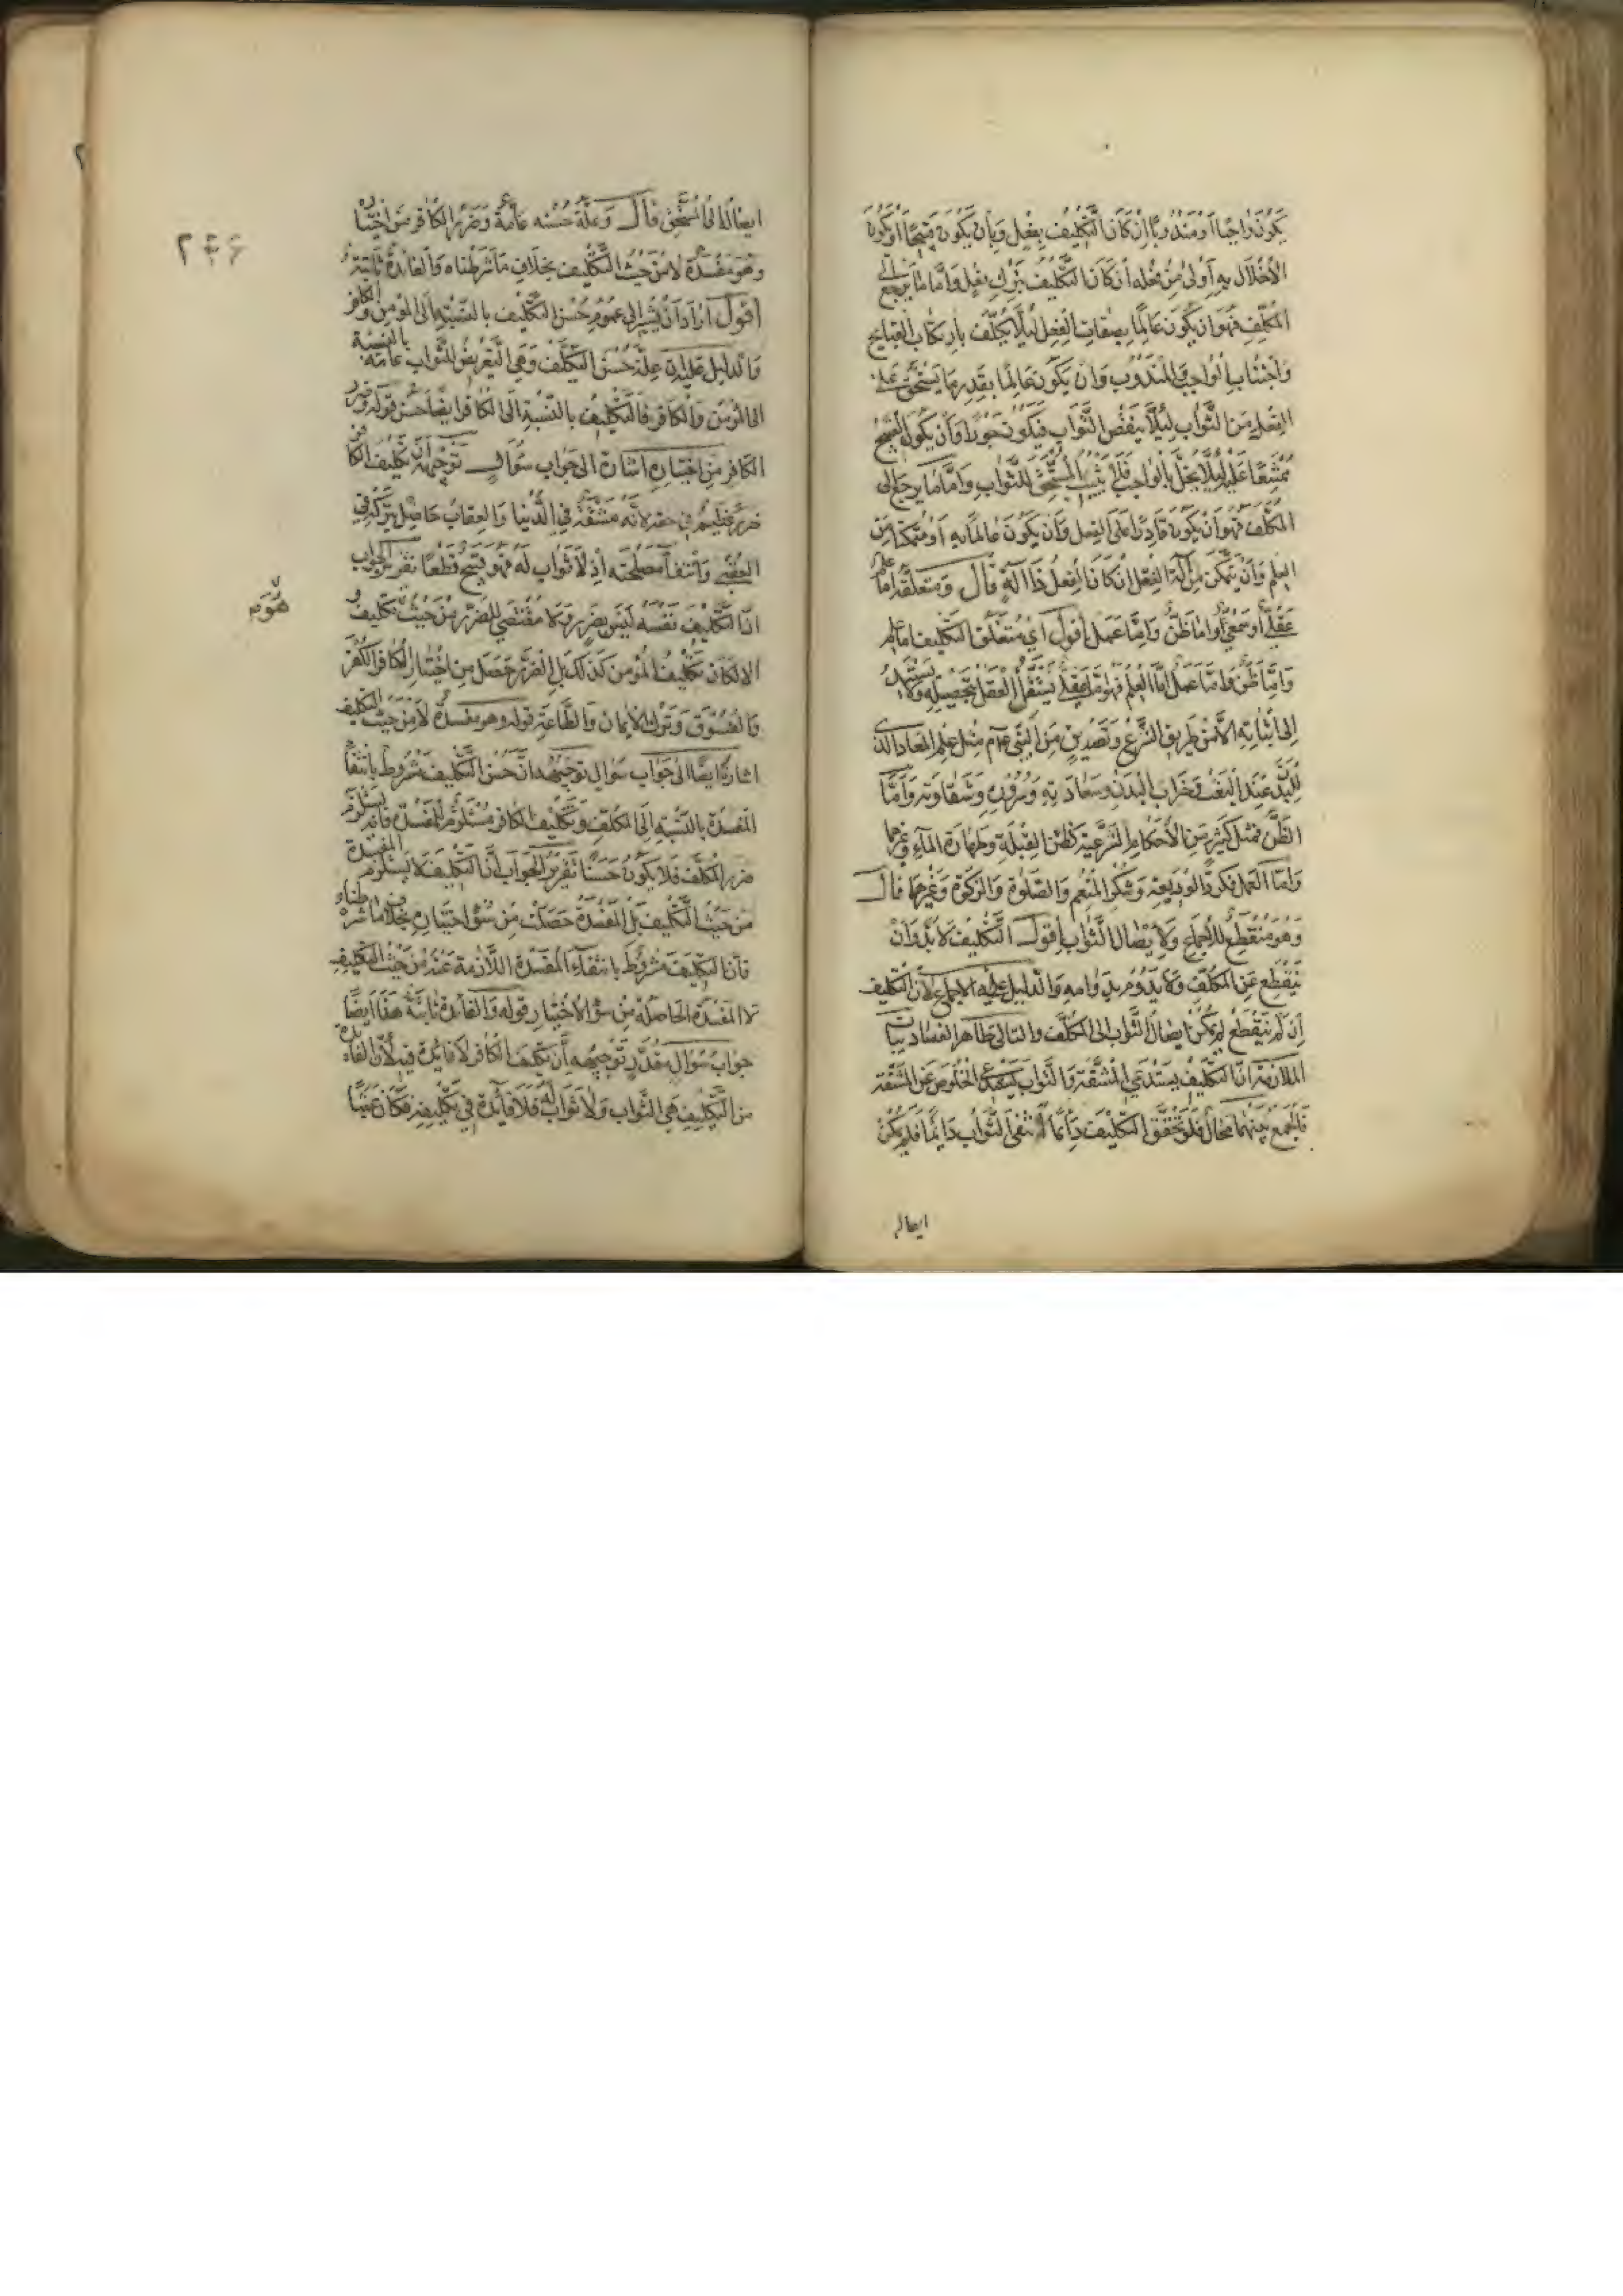 يكون واجبا او مندوبا ان كان التكليف بفعل وبان يكون قبيحا او يكون
الاخلال به اولى من فعله ان كان التكليف بترك فعل واما ما يرجع الى
المكلف فهو ان يكون عالما بصفات الفعل لئلا يكلف بارتكاب القبايح
واجتناب الواجب والمندوب وان يكون عالما بقدر ما يستحق على
الفعل من الثواب لئلا ينقص الثواب فيكون جورا وان يكون القبيح
ممتنعا عليه لئلا يخل بالواجب فلا يثيب المستحق للثواب واما ما يرجع الى
المكلف فهو ان يكون قادرا على الفعل وان يكون عالما به او متمكنا من
العلم وان يتمكن من آلة الفعل ان كان الفعل ذا آلة قال ومتعلقه اما علم
عقلي او سمعي واما ظن واما عمل اقول اي متعلق التكليف اما علم
واما ظن واما عمل اما العلم فهو اما عقلي يستقل العقل بتحصيله ولا
الى اثباته الا من طريق الشرع وتصديق من النبي عم مثل علم المعاد الذي
للبدن عند البعث وخراب البدن وسعادته وسروره وشقاوته واما
الظن فمثل كثير من الاحكام الشرعية كظن القبلة وطهارة الماء وغيرهما
واما العمل فكرد الوديعة وشكر المنعم والصلوة والزكوة وغيرها قال
وهو منقطع للاجماع ولايصال الثواب اقول التكليف لا بد وان
ينقطع عن المكلف ولا يدوم بدوامه والدليل عليه الاجماع ولان التكليف
ان لم ينقطع لم يمكن ايصال الثواب الى المكلف والتالي ظاهر الفساد بيان
الملازمة ان التكليف يستدعي المشقة والثواب يستدعي الخلوص عن المشقة
فالجمع بينهما محال فلو تحقق التكليف دائما انتفى الثواب دائما فلم يمكن
ايصاله
٢٤٦
ايصاله الى المستحق قال وعلة حسنه عامة وضرر الكافر من اختياره
وهو مفسدة لا من حيث التكليف بخلاف ما شرطناه والفائدة ثابتة
اقول اراد ان يشير الى عموم حسن التكليف بالنسبة الى المؤمن والكافر
والدليل عليه ان علة حسن التكليف وهي التعريض للثواب عامة بالنسبة
الى المؤمن والكافر فالتكليف بالنسبة الى الكافر ايضا حسن قوله وضرر
الكافر من اختياره اشارة الى جواب سؤال توجيهه ان تكليف الكافر
ضرر عظيم في حقه لانه مشقة في الدنيا والعقاب حاصل بتركه في
العقبى وانتفاء مصلحته اذ لا ثواب له فهو قبيح قطعا تقرير الجواب
ان التكليف نفسه ليس بضرر ولا مقتضي للضرر من حيث هو تكليف
والا لكان تكليف المؤمن كذلك بل الضرر حصل من اختيار الكافر الكفر
والفسوق وترك الايمان والطاعة قوله وهو مفسدة لا من حيث التكليف
اشارة ايضا الى جواب سؤال توجيهه ان حسن التكليف مشروط بانتفاء
المفسدة بالنسبة الى المكلف وتكليف الكافر مستلزم للمفسدة فانه يستلزم
ضرر المكلف فلا يكون حسنا تقرير الجواب ان التكليف لا يستلزم المفسدة
من حيث التكليف بل المفسدة حصلت من سوء اختياره بخلاف ما شرطناه
فان التكليف مشروط بانتفاء المفسدة اللازمة عنه من حيث التكليف
لا المفسدة الحاصلة من سوء الاختيار قوله والفائدة ثابتة هذا ايضا
جواب سؤال مقدر توجيهه ان تكليف الكافر لا فائدة فيه لان الفائدة
من التكليف هي الثواب ولا ثواب له فلا فائدة في تكليفه فكان عبثا